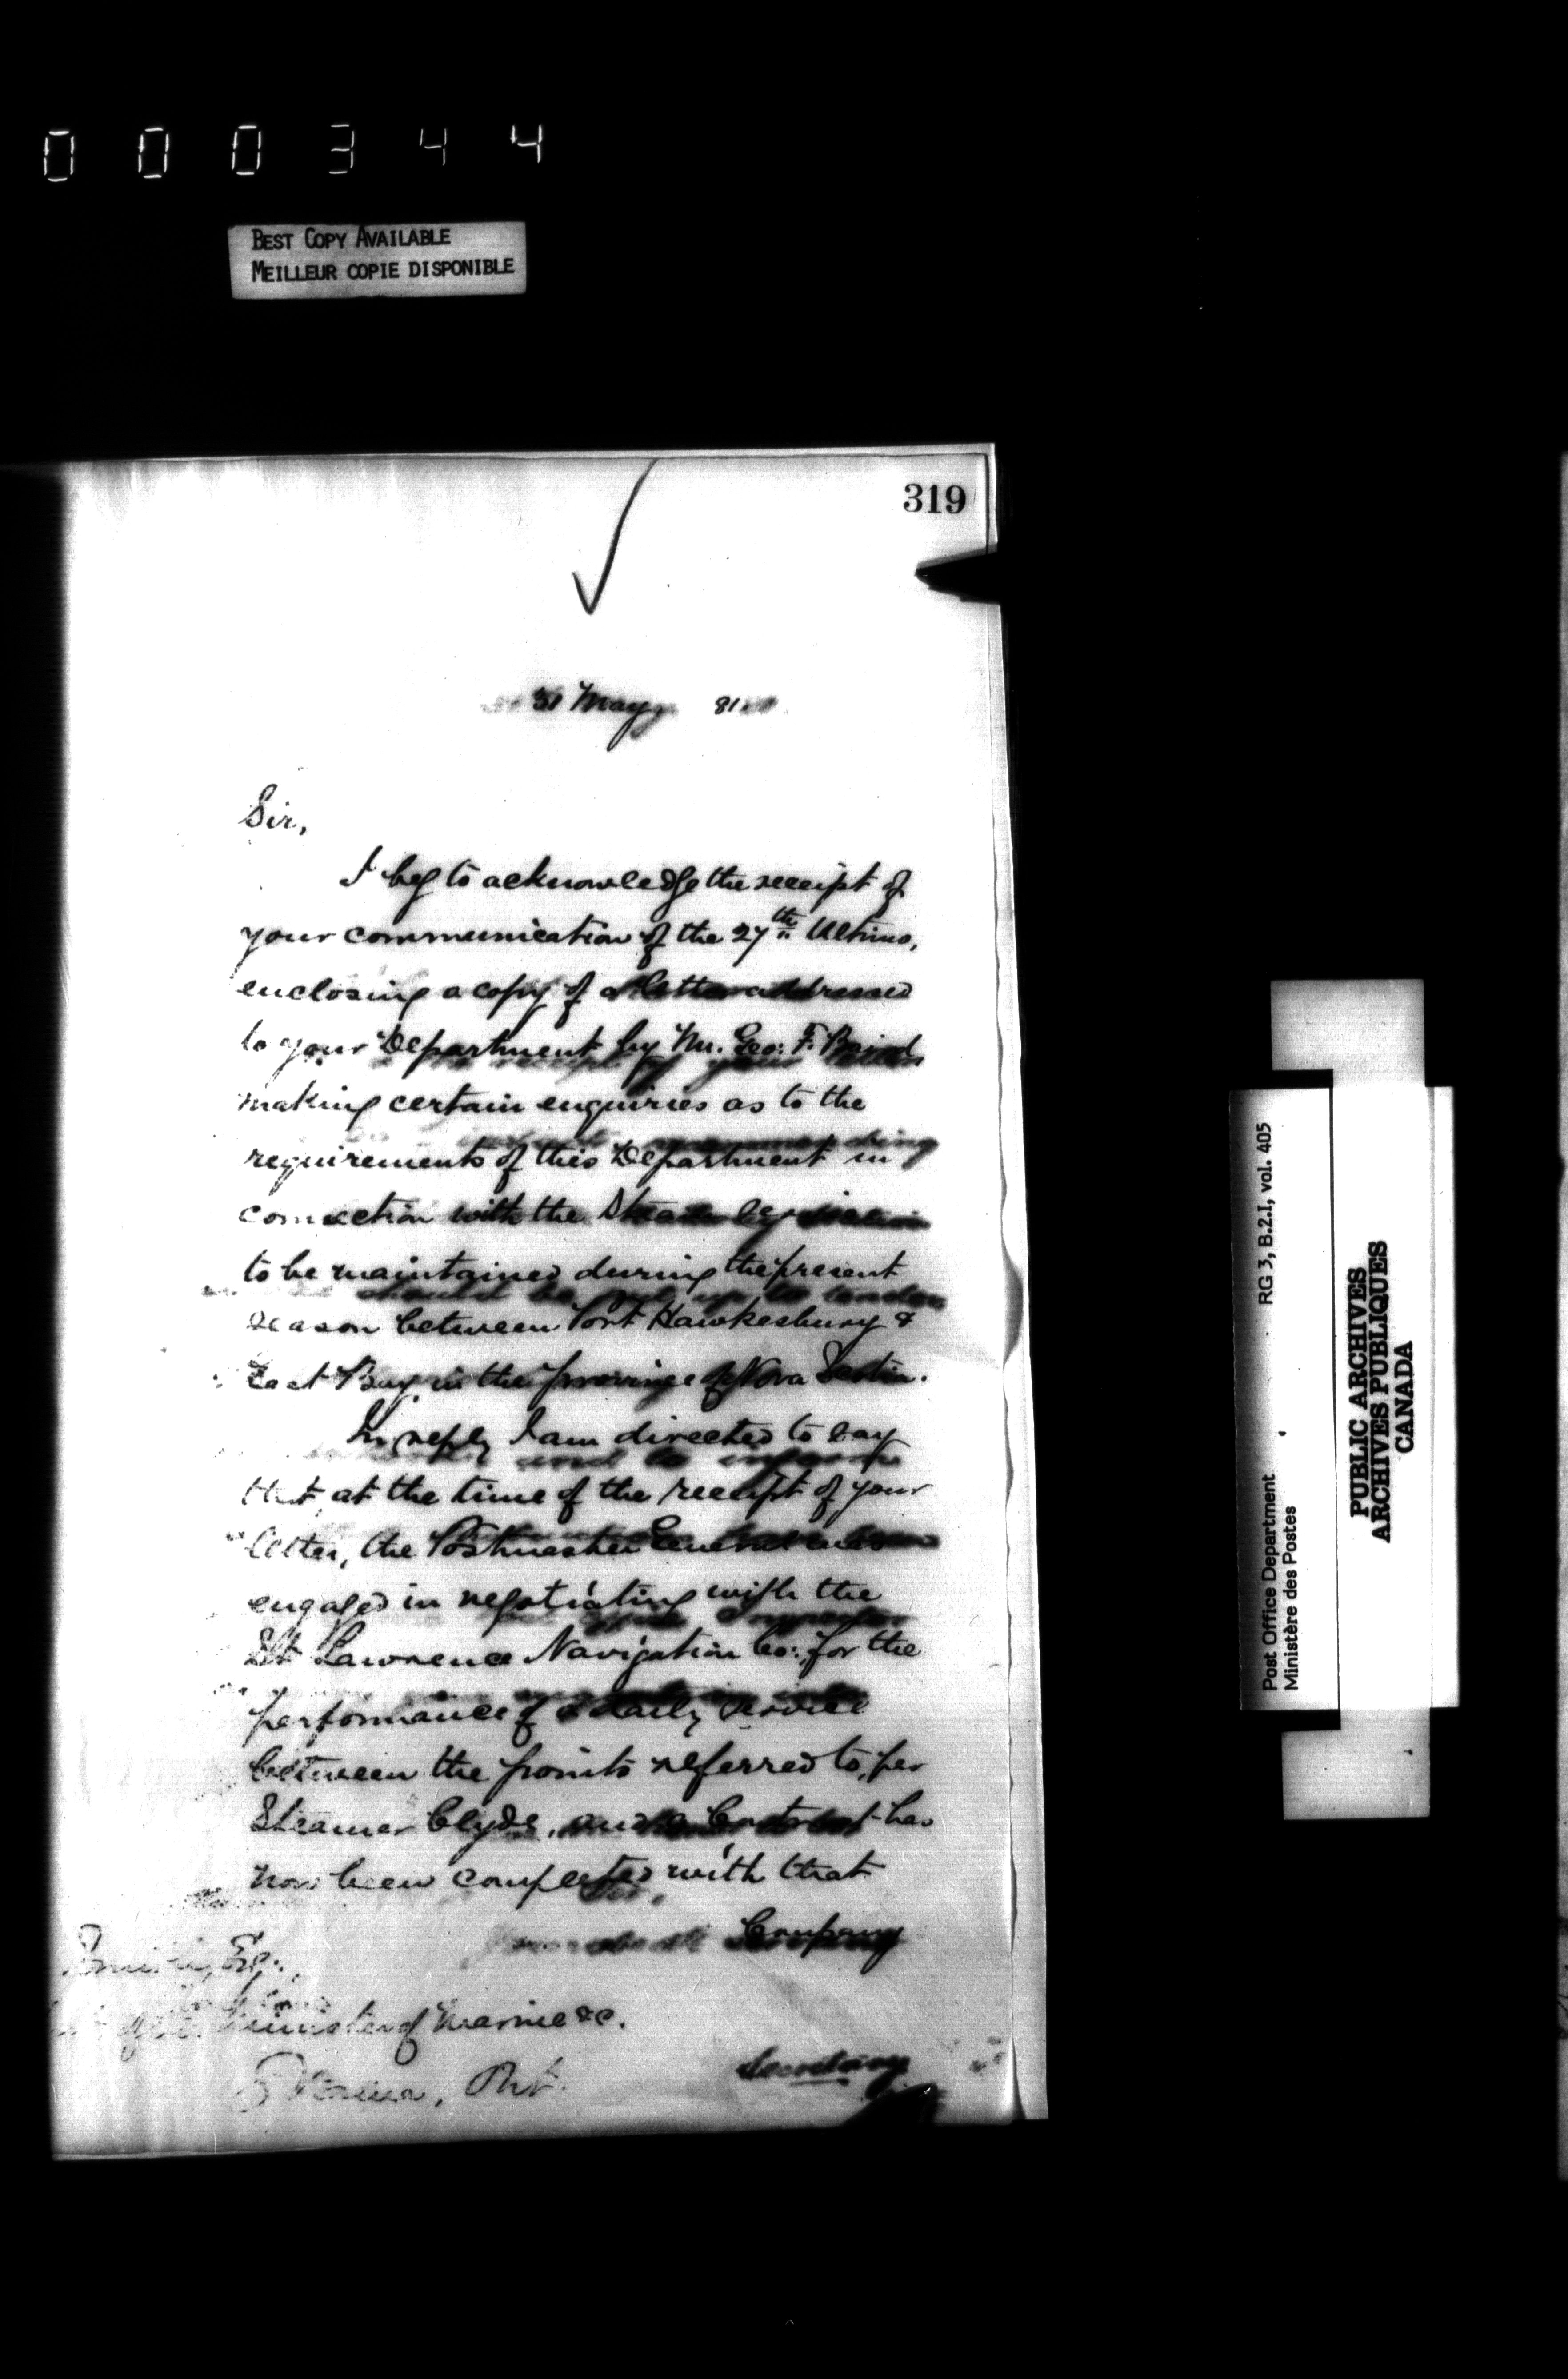 000344
BEST COPY AVAILABLE
MEILLEUR COPIE DISPONIBLE
319
31 May 81
Sir,
I beg to acknowledge the receipt of
your communication of the 27th Ultimo,
enclosing a copy of a letter addressed
to your Department by Mr. Geo: F. Baird
making certain enquiries as to the
requirements of this Department in
connection with the
to be maintained during the present
season between Port Hawkesbury &
East Bay in the province of Nova Scotia.
In reply I am directed to say
that, at the time of the receipt of your
letter, the Postmaster General was
engaged in negotiating with the
St. Lawrence Navigation Co: for the
performance of a daily service
between the points referred to, per
Steamer Clyde, and a Contract has
now been completed with that
Company
Smith, Esq.,
Minister of Marine &c.
Ottawa, Ont.
Secretary
Post Office Department RG 3, B.2.I, vol. 405
Ministère des Postes
PUBLIC ARCHIVES
ARCHIVES PUBLIQUES
CANADA